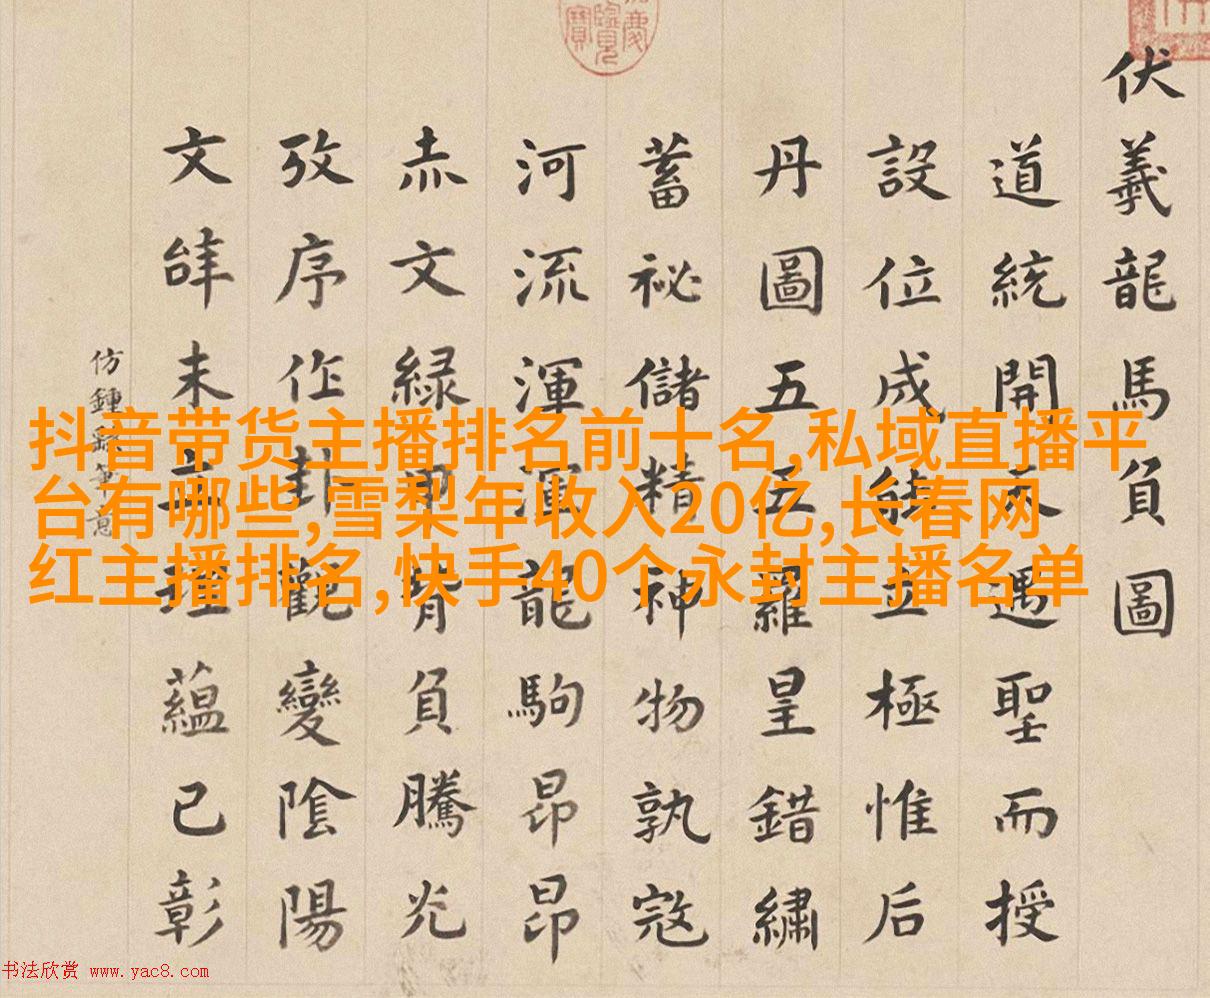 伏羲龍馬負圖
道統開天遇聖而授
設位成能立極惟后
丹圖五五羅皇錯繡
蓄祕儲精神物孰寇
河流渾渾龍駒昂昂
赤文緑甲背負騰光
攷序作卦觀變陰陽
文未立理蘊已彰
仿鍾繇筆意
抖音带货主播排名前十名,私域直播平
台有哪些,雪梨年收入20亿,长春网
红主播排名,快手40个永封主播名单
书法欣赏 www.yac8.com